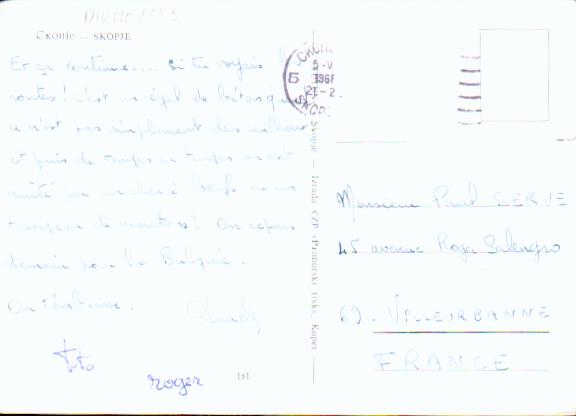 Скопје — SKOPJE
Et ça continue.... si tu voyais les
routes! c'est un régal de béton quand
ce n'est pas simplement des cailloux
et puis de temps en temps on est
arrêté par un char à bœufs ou un
troupeau de moutons! On repart
demain pour la Bulgarie.
On t'embrasse.
Toto
roger
181
Skopje — Izrada ČZP »Primorski tisk«, Koper
5-V
1968
21-2
Monsieur Paul SERVE
45 avenue Roger Salengro
69. VILLEURBANNE
FRANCE